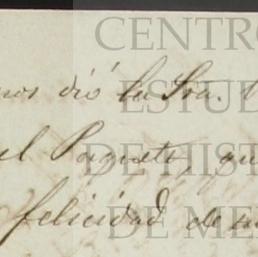 CENTRO
nos dió la Sra.
ESTUD
el Paquete, qu
DE HIST
felicidad de
DE ME